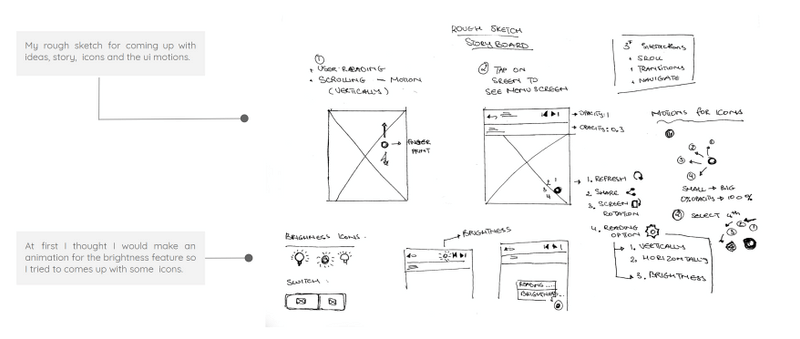 My rough sketch for coming up with
ideas, story, icons and the ui motions.
At first I thought I would make an
animation for the brightness feature so
I tried to comes up with some icons.
ROUGH SKETCH
STORY BOARD
1
• USER READING
• SCROLLING — MOTION
(VERTICALLY)
FINGER
PRINT
2 TAP ON
SREEN TO
SEE MENU SCREEN
OPACITY:1
OPACITY:0.3
1. REFRESH
2. SHARE
3. SCREEN
ROTATION
4. READING
OPTION
1. VERTICALLY
2. HORIZONTALLY
3. BRIGHTNESS
• SROLL
• TRANSITIONS
• NAVIGATE
MOTIONS FOR ICONS
SMALL → BIG
0% OPACITY → 100%
SELECT 4th
BRIGHTNESS ICONS.
SWITCH.
BRIGHTNESS
READING ...
BRIGHTNESS...